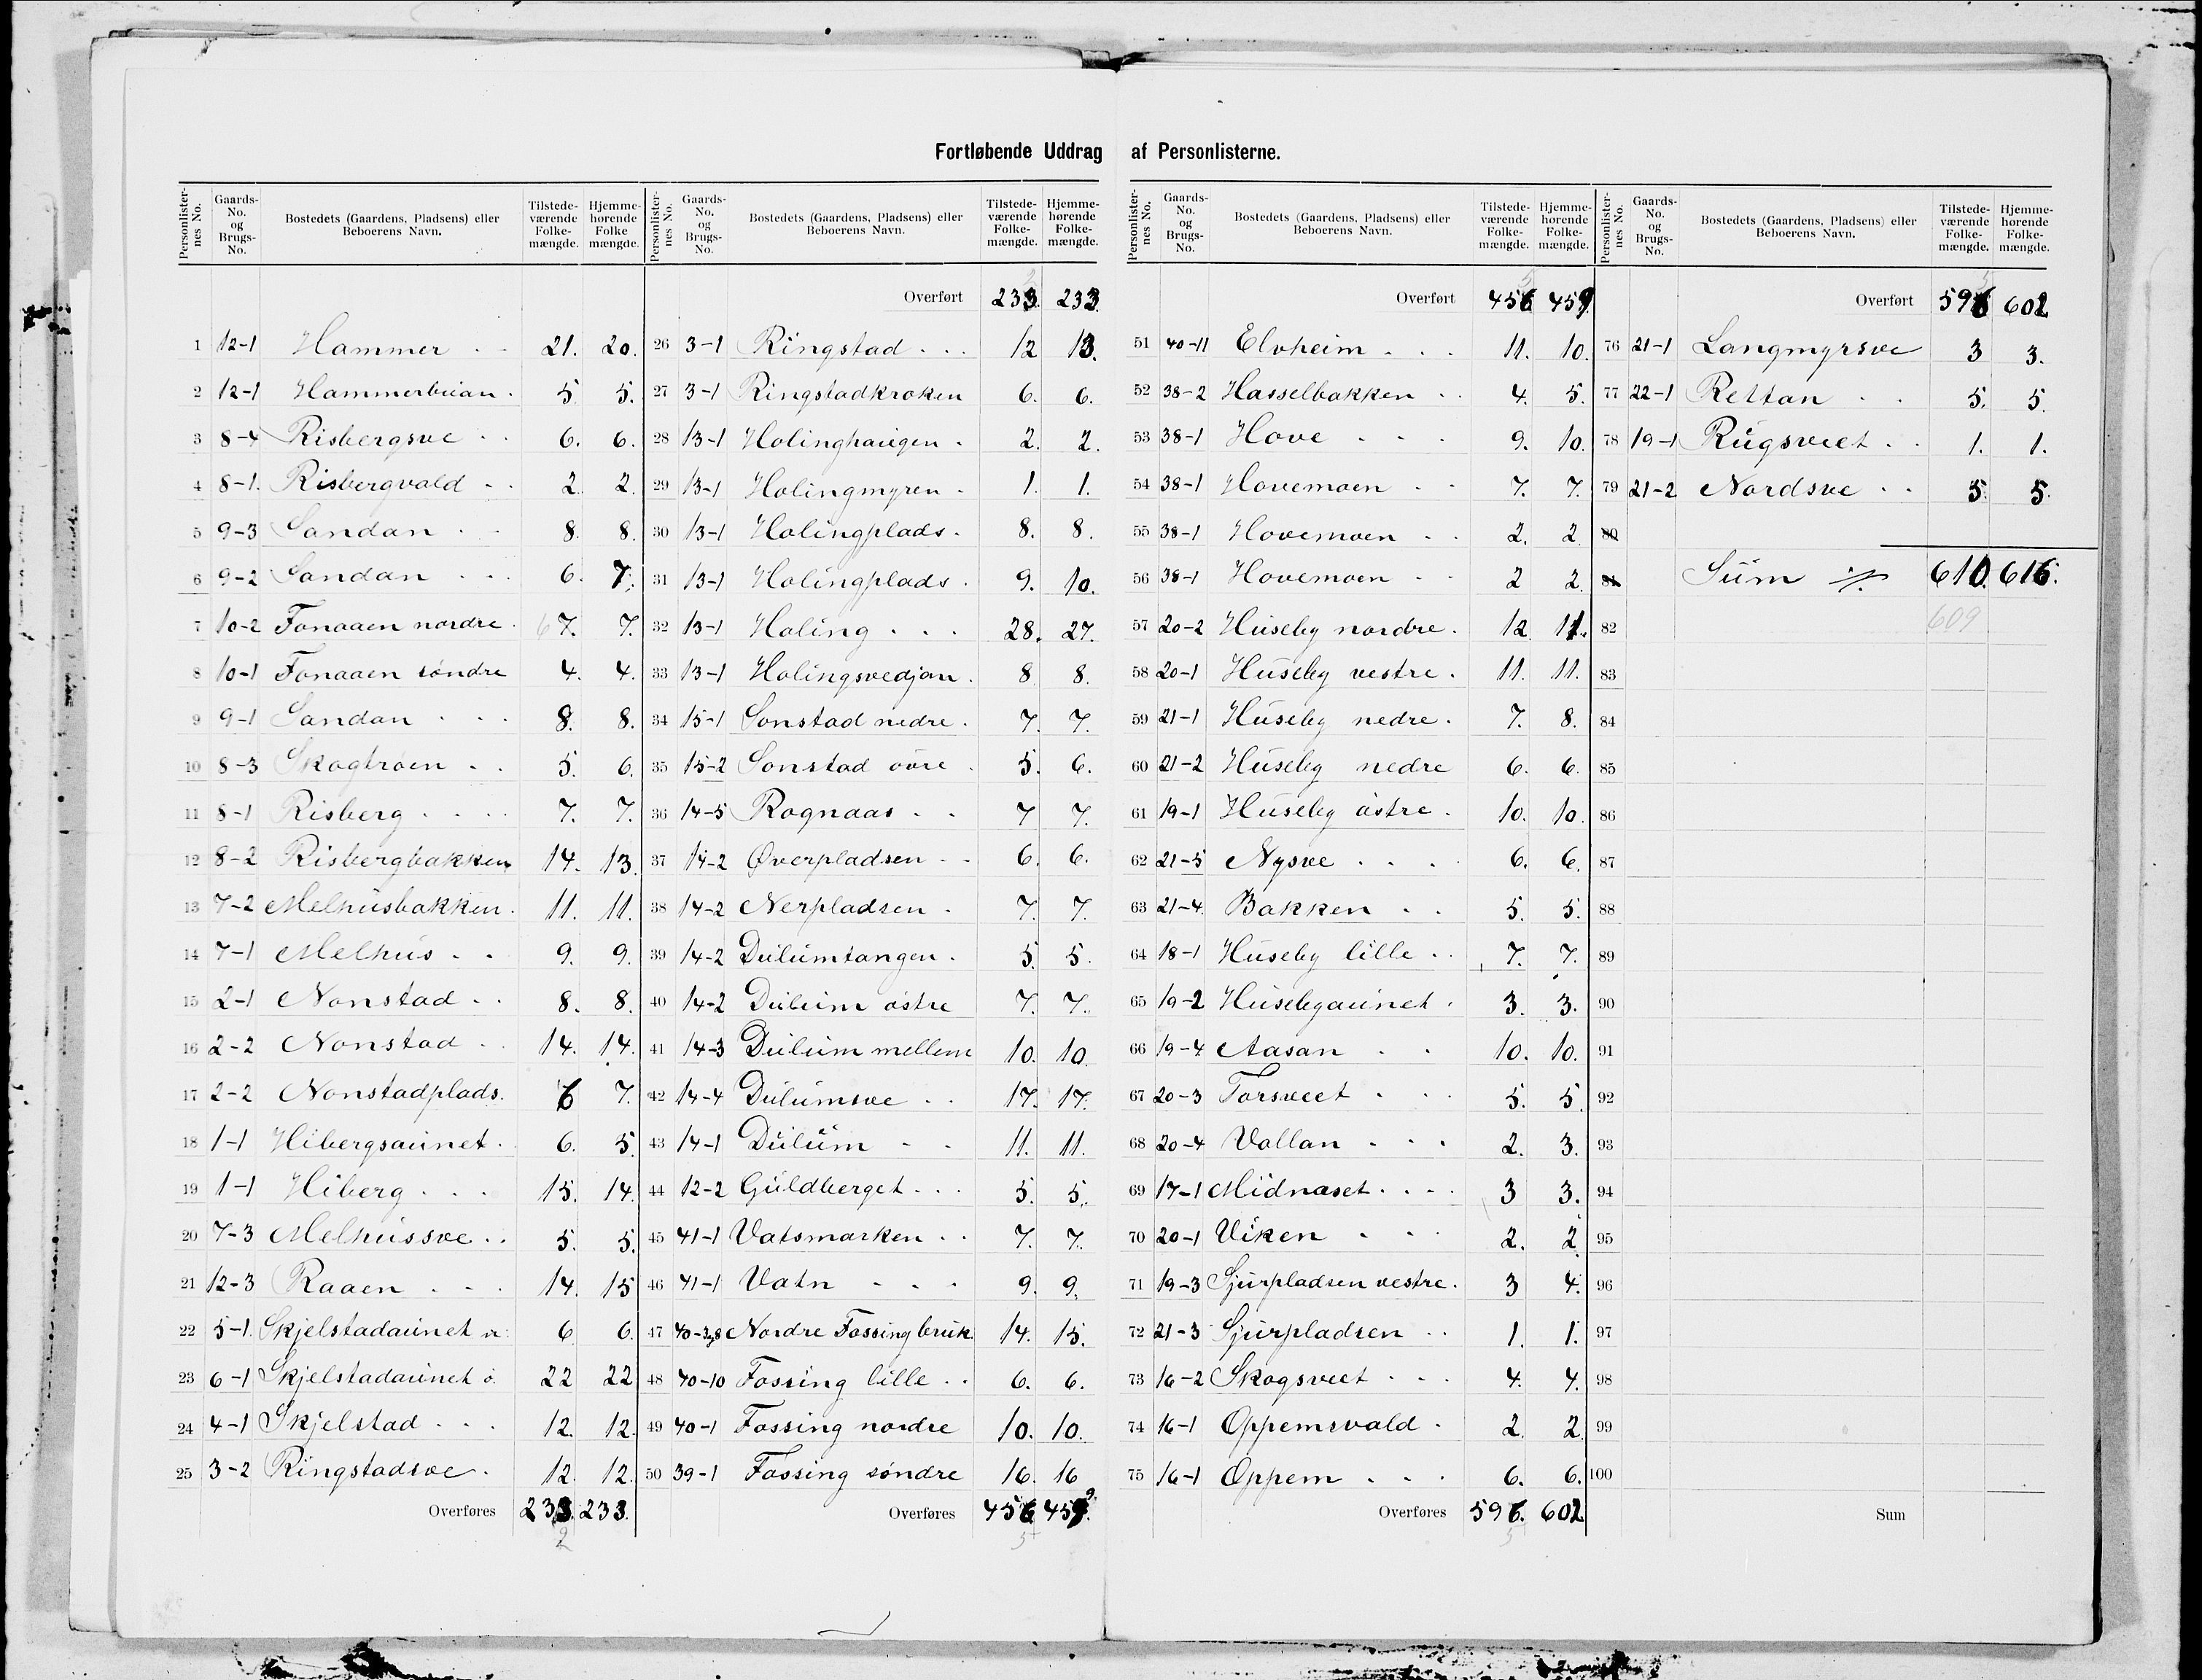 Fortløbende Uddrag af Personlisterne.
Personlister-nes No. Gaards-No. og Brugs-No. Bostedets (Gaardens, Pladsens) eller Beboerens Navn. Tilstede-værende Folke-mængde. Hjemme-hørende Folke mængde.
1 12-1 Hammer 21. 20.
2 12-1 Hammerbuan 5 5.
3 8-4 Risbergsve 6. 6.
4 8-1. Risbergvald 2. 2.
5 9-3 Sandan 8. 8.
6 9-2 Sandan 6. 7.
7 10-2 Fonaaen nordre 7. 7.
8 10-1 Fonaaen söndre 4. 4.
9 9-1 Sandan 8. 8.
10 8-3 Skogtrøen 5. 6.
11 8-1 Risberg 7. 7.
12 8-2 Risbergbakken 14. 13.
13 7-2 Melhusbakken 11. 11.
14 7-1 Melhus 9. 9.
15 2-1 Nonstad 8. 8.
16 2-2 Nonstad 14. 14.
17 2-2 Nonstadplads. 6 7.
18 1-1 Hibergsaunet 6. 5.
19 1-1 Hiberg 15. 14.
20 7-3 Melhussve 5. 5.
21 12-3 Raaen 14. 15
22 5-1. Skjelstadaunet v. 6 6.
23 6-1 Skjelstadaunet ö. 22 22
24 4-1 Skjelstad 12. 12.
25 3-2 Ringstadsve 12. 12.
Overføres 233. 233.
2
Personlister-nes No. Gaards-No. og Brugs-No. Bostedets (Gaardens, Pladsens) eller Beboerens Navn. Tilstede-værende Folke-mængde. Hjemme-hørende Folke-mængde.
Overført 233. 233.
26 3-1 Ringstad 12 13.
27 3-1 Ringstadkroken 6. 6.
28 13-1 Holinghaugen 2. 2.
29 13-1 Holingmyren 1. 1.
30 13-1 Holingplads 8. 8.
31 13-1 Holingplads 9. 10.
32 13-1 Holing 28. 27.
33 13-1 Holingsvedjan 8 8.
34 15-1 Sonstad nedre 7. 7.
35 15-2 Sonstad övre 5. 6.
36 14-5 Rognaas 7 7.
37 14-2 Øverpladsen 6. 6.
38 14-2 Nerpladsen 7. 7.
39 14-2 Dulumtangen 5. 5.
40 14-2 Dulum östre 7. 7.
41 14-3 Dulum mellem 10. 10.
42 14-4 Dulumsve 17. 17.
43 14-1 Dulum 11. 11.
44 12-2 Guldberget 5. 5.
45 41-1 Vatsmarken 7. 7.
46 41-1 Vatn 9. 9.
47 40-3,8 Nordre Fossing bruk 14. 15.
48 40-10 Fossing lille 6. 6.
49 40-1 Fossing nordre 10. 10.
50 39-1 Fossing söndre 16. 16
Overføres 456 459.
5
Personlister-nes No. Gaards-No. og Brugs-No. Bostedets (Gaardens, Pladsens) eller Beboerens Navn. Tilstede-værende Folke-mængde. Hjemme-hørende Folke-mængde.
Overført 456 459
51 40-11 Elvheim 11. 10.
52 38-2 Hasselbakken 4. 5.
53 38-1 Hove 9. 10.
54 38-1 Hovemoen 7. 7.
55 38-1 Hovemoen 2. 2.
56 38-1 Hovemoen 2 2.
57 20-2 Huseby nordre 12. 11.
58 20-1 Huseby vestre 11. 11.
59 21-1 Huseby nedre 7. 8.
60 21-2 Huseby nedre 6. 6.
61 19-1 Huseby östre 10. 10.
62 21-5 Nysve 6. 6.
63 21-4. Bakken 5. 5.
64 18-1 Huseby lille 7. 7.
65 19-2 Husebyaunet 3. 3.
66 19-4 Aasan 10. 10.
67 20-3 Torsveet 5. 5.
68 20-4 Vollan 2. 3.
69 17-1 Midnaset 3 3.
70 20-1 Viken 2. 2
71 19-3 Sjurpladsen vestre. 3 4.
72 21-3 Sjurpladsen 1. 1.
73 16-2 Skogsveet 4. 4.
74 16-1 Oppemsvald 2. 2.
75 16-1 Oppem 6. 6.
Overføres 596. 602
5
Personlister-nes No. Gaards-No. og Brugs-No. Bostedets (Gaardens, Pladsens) eller Beboerens Navn. Tilstede-værende Folke-mængde. Hjemme-hørende Folke-mængde.
Overført 596 602
76 21-1 Langmyrsve 3 3.
77 22-1 Rettan 5. 5.
78 19-1 Rugsveet 1. 1.
79 21-2 Nordsve 5. 5.
80
81 Sum 610. 616.
82 609
83
84
85
86
87
88
89
90
91
92
93
94
95
96
97
98
99
100
Sum